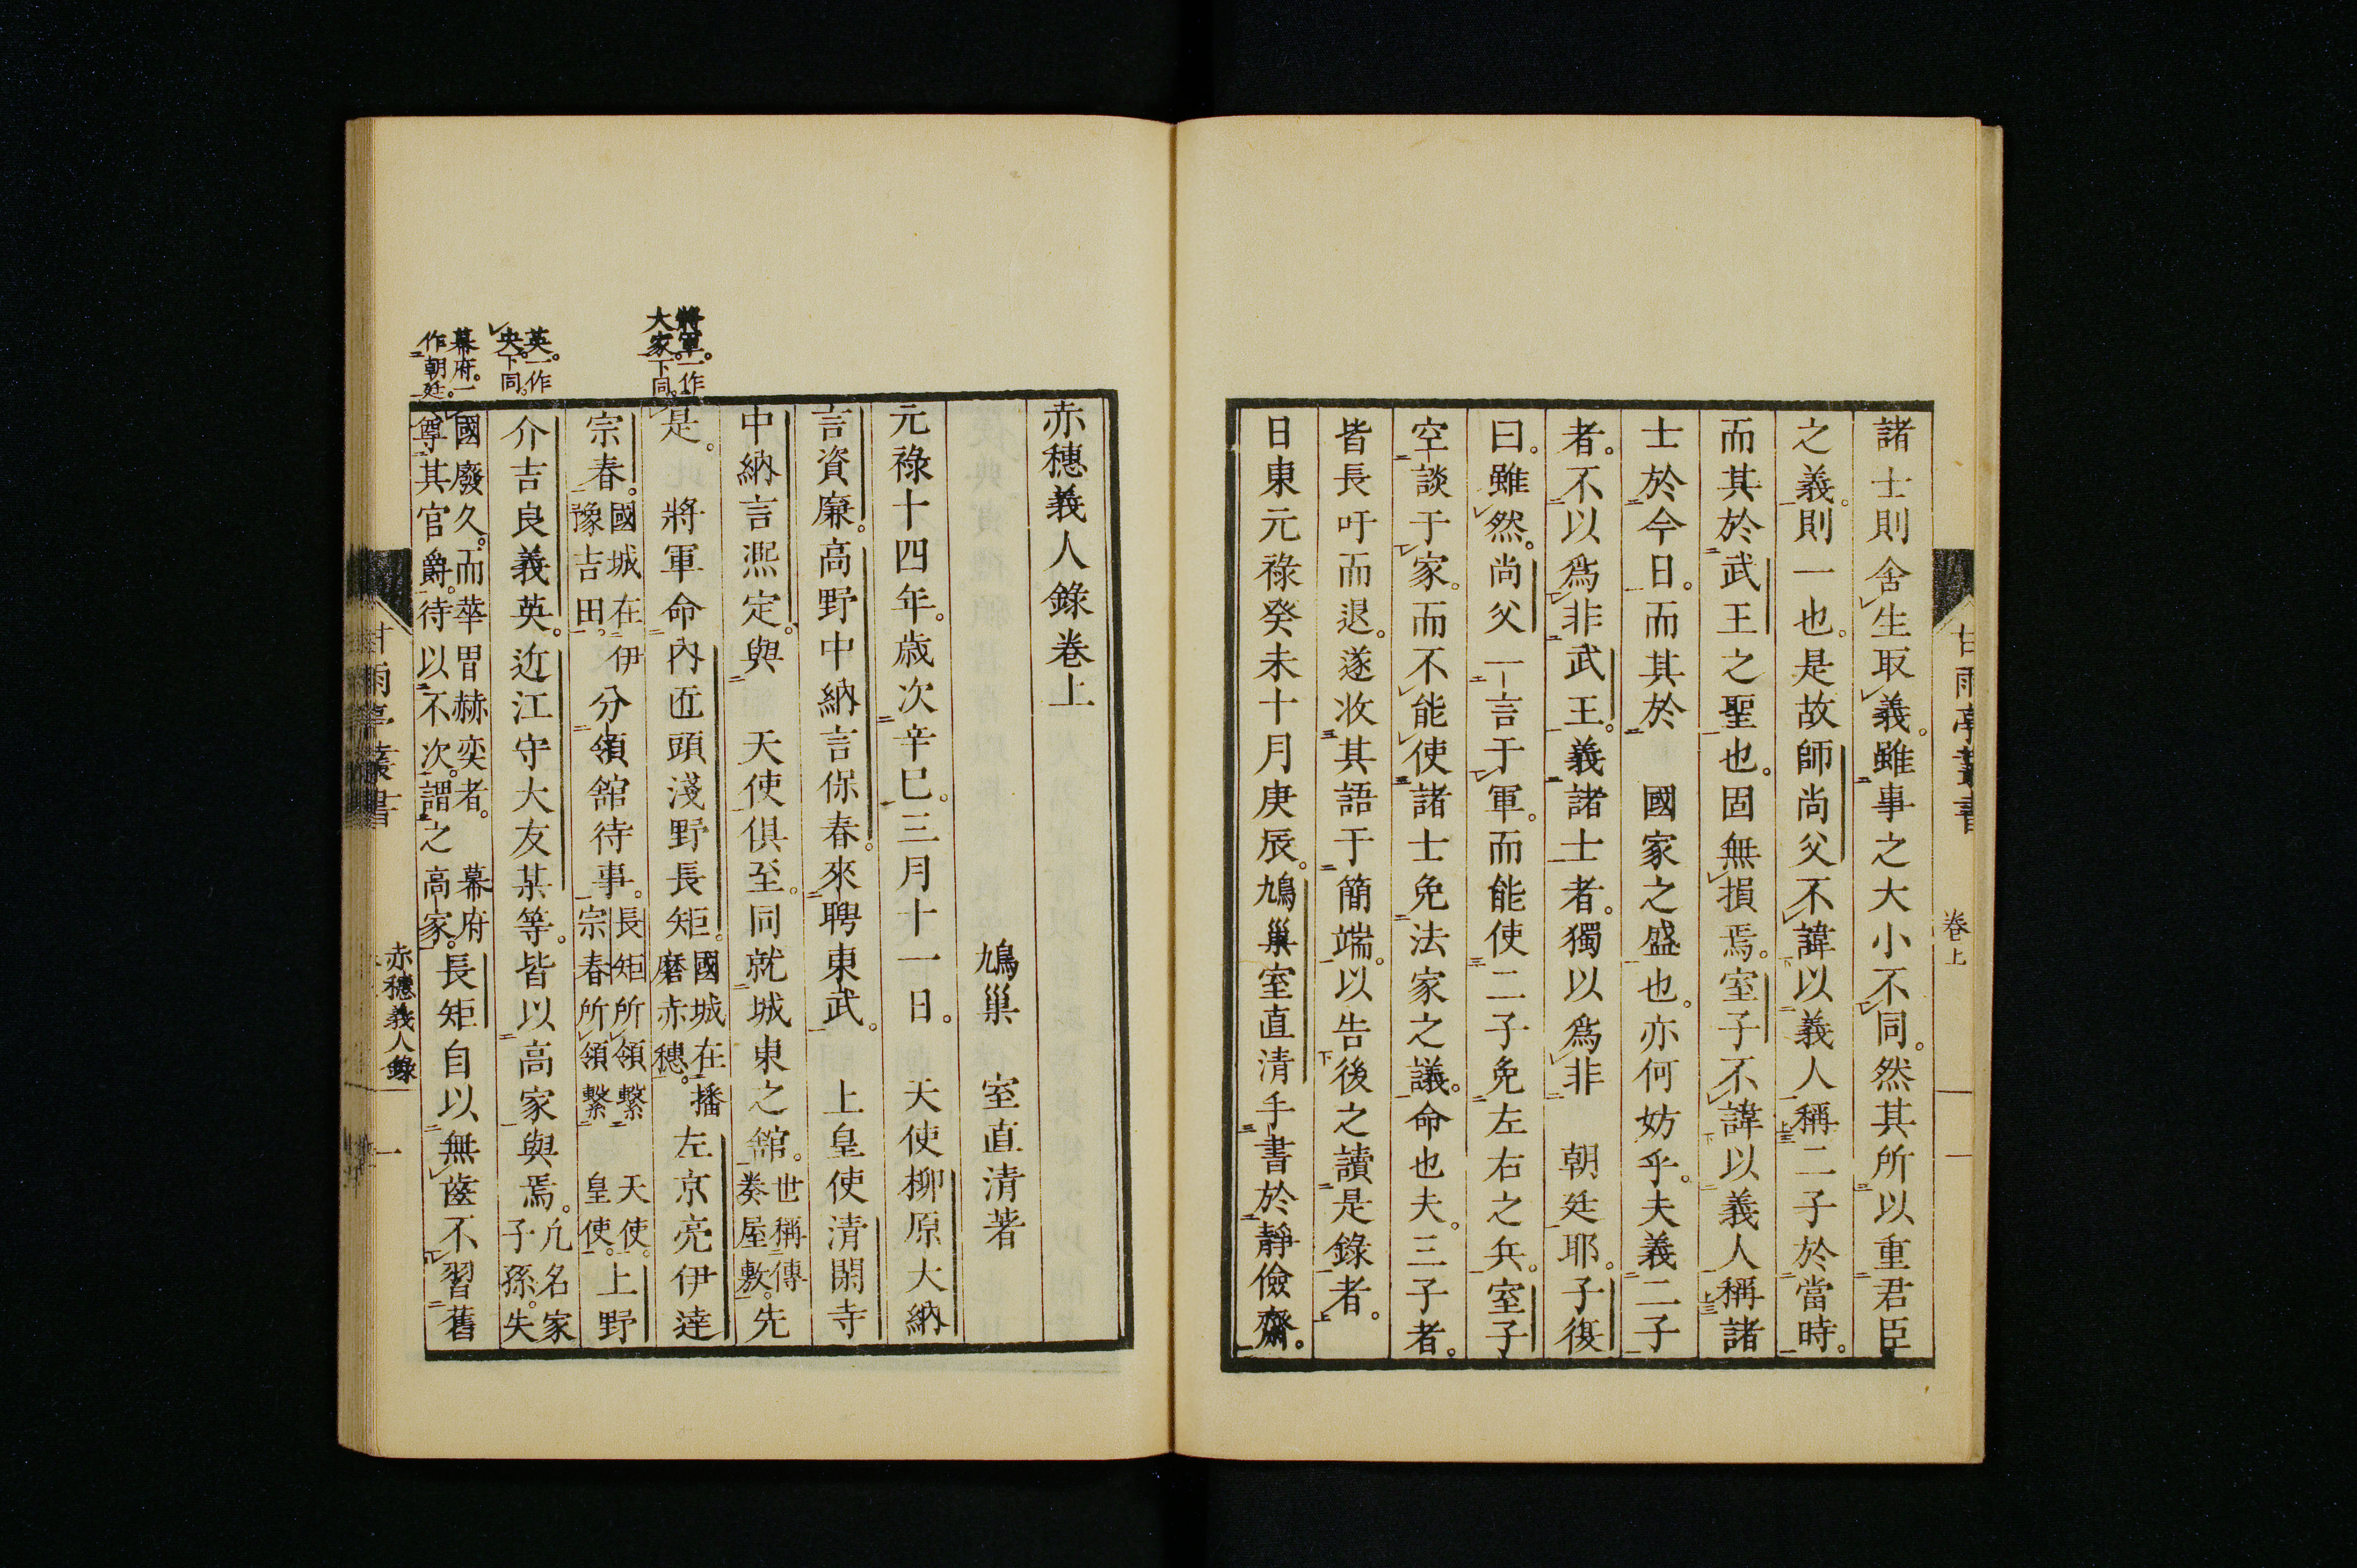 甘雨亭叢書 卷上 一
諸士則舍生取義。雖事之大小不同。然其所以重君臣
之義。則一也。是故師尚父不諱以義人稱二子於當時。
而其於武王之聖也。固無損焉。室子不諱以義人稱諸
士於今日。而其於 國家之盛也。亦何妨乎。夫義二子
者。不以爲非武王。義諸士者。獨以爲非 朝廷耶。子復
曰。雖然。尚父一言于軍。而能使二子免左右之兵。室子
空談于家。而不能使諸士免法家之議。命也夫。三子者。
皆長吁而退。遂收其語于簡端。以告後之讀是錄者。
日東元祿癸未十月庚辰。鳩巢室直清手書於靜儉齋。
赤穗義人錄卷上
鳩巢 室直清著
元祿十四年。歲次辛巳。三月十一日。 天使柳原大納
言資廉。高野中納言保春。來聘東武。 上皇使清閑寺
中納言熈定。與 天使俱至。同就城東之舘。世稱傳奏屋敷。先
將軍。一作大家。下同。
是。 將軍命內匠頭淺野長矩。國城在播磨赤穗。左京亮伊達
宗春。國城在伊豫吉田。分領舘待事。長矩所領繫 天使。宗春所領繫 皇使。上野
英。一作央。下同。
介吉良義英。近江守大友某等。皆以高家與焉。凢名家子孫。失
幕府。一作朝廷。
國廢久。而華胄赫奕者。 幕府尊其官爵。待以不次。謂之高家。長矩自以無齒不習舊
甘雨亭叢書 赤穗義人錄 一